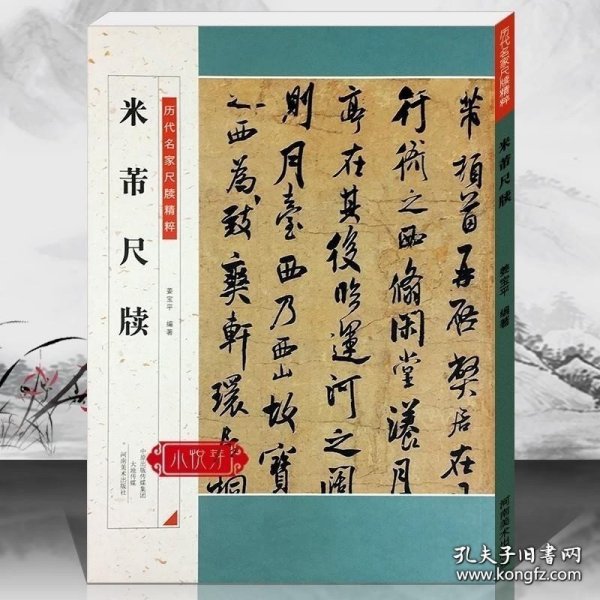 历代名家尺牍精粹
米芾尺牍
姜宝平 编著
中原出版传媒集团
大地传媒
河南美术出版社
芾顿首再启弊居在
行衙之西脩闲堂漾月
亭在其后临运河之阔
则月台西乃西山故宝
之西为致爽轩环
小悦芽
历代名家尺牍精粹
米芾尺牍
姜宝平 编著
河南美术出
孔夫子旧书网
www.kongfz.com